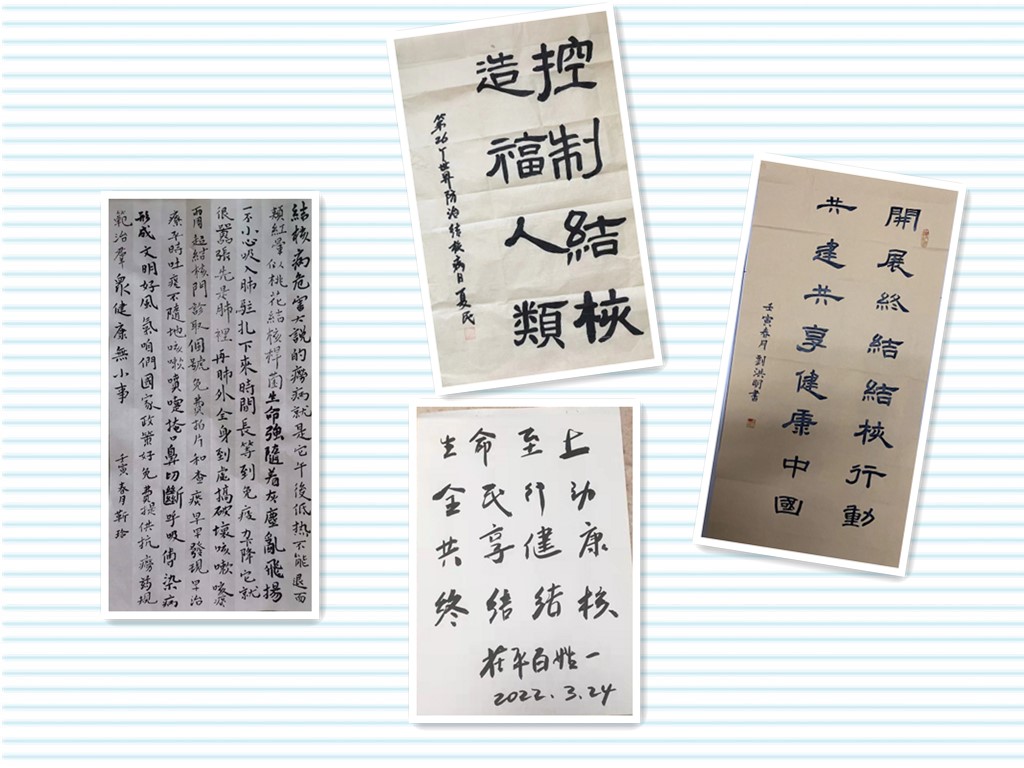 結核病危害大說的癆病就是它午後低热不能退面
頰紅暈似桃花結核桿菌生命強隨着灰塵亂飛揚
一不小心吸入肺駐扎下來時間長等到免疫力下降它就
很囂張先是肺裡再肺外全身到處搞破壞咳嗽咳痰
两周超結核門診取個號免費拍片和查痰早早發現早治
療平時吐痰不隨地咳嗽噴嚏掩口鼻切斷呼吸傳染病
形成文明好風氣咱們國家政策好免費提供抗癆药規
範治羣眾健康無小事 壬寅春月靳玲
控制結核
造福人類
第26个世界防治結核病日夏民
生命至上
全民行动
共享健康
终結结核
茌平百姓一
2022.3.24
開展終結結核行動
共建共享健康中國
壬寅春月劉洪明書